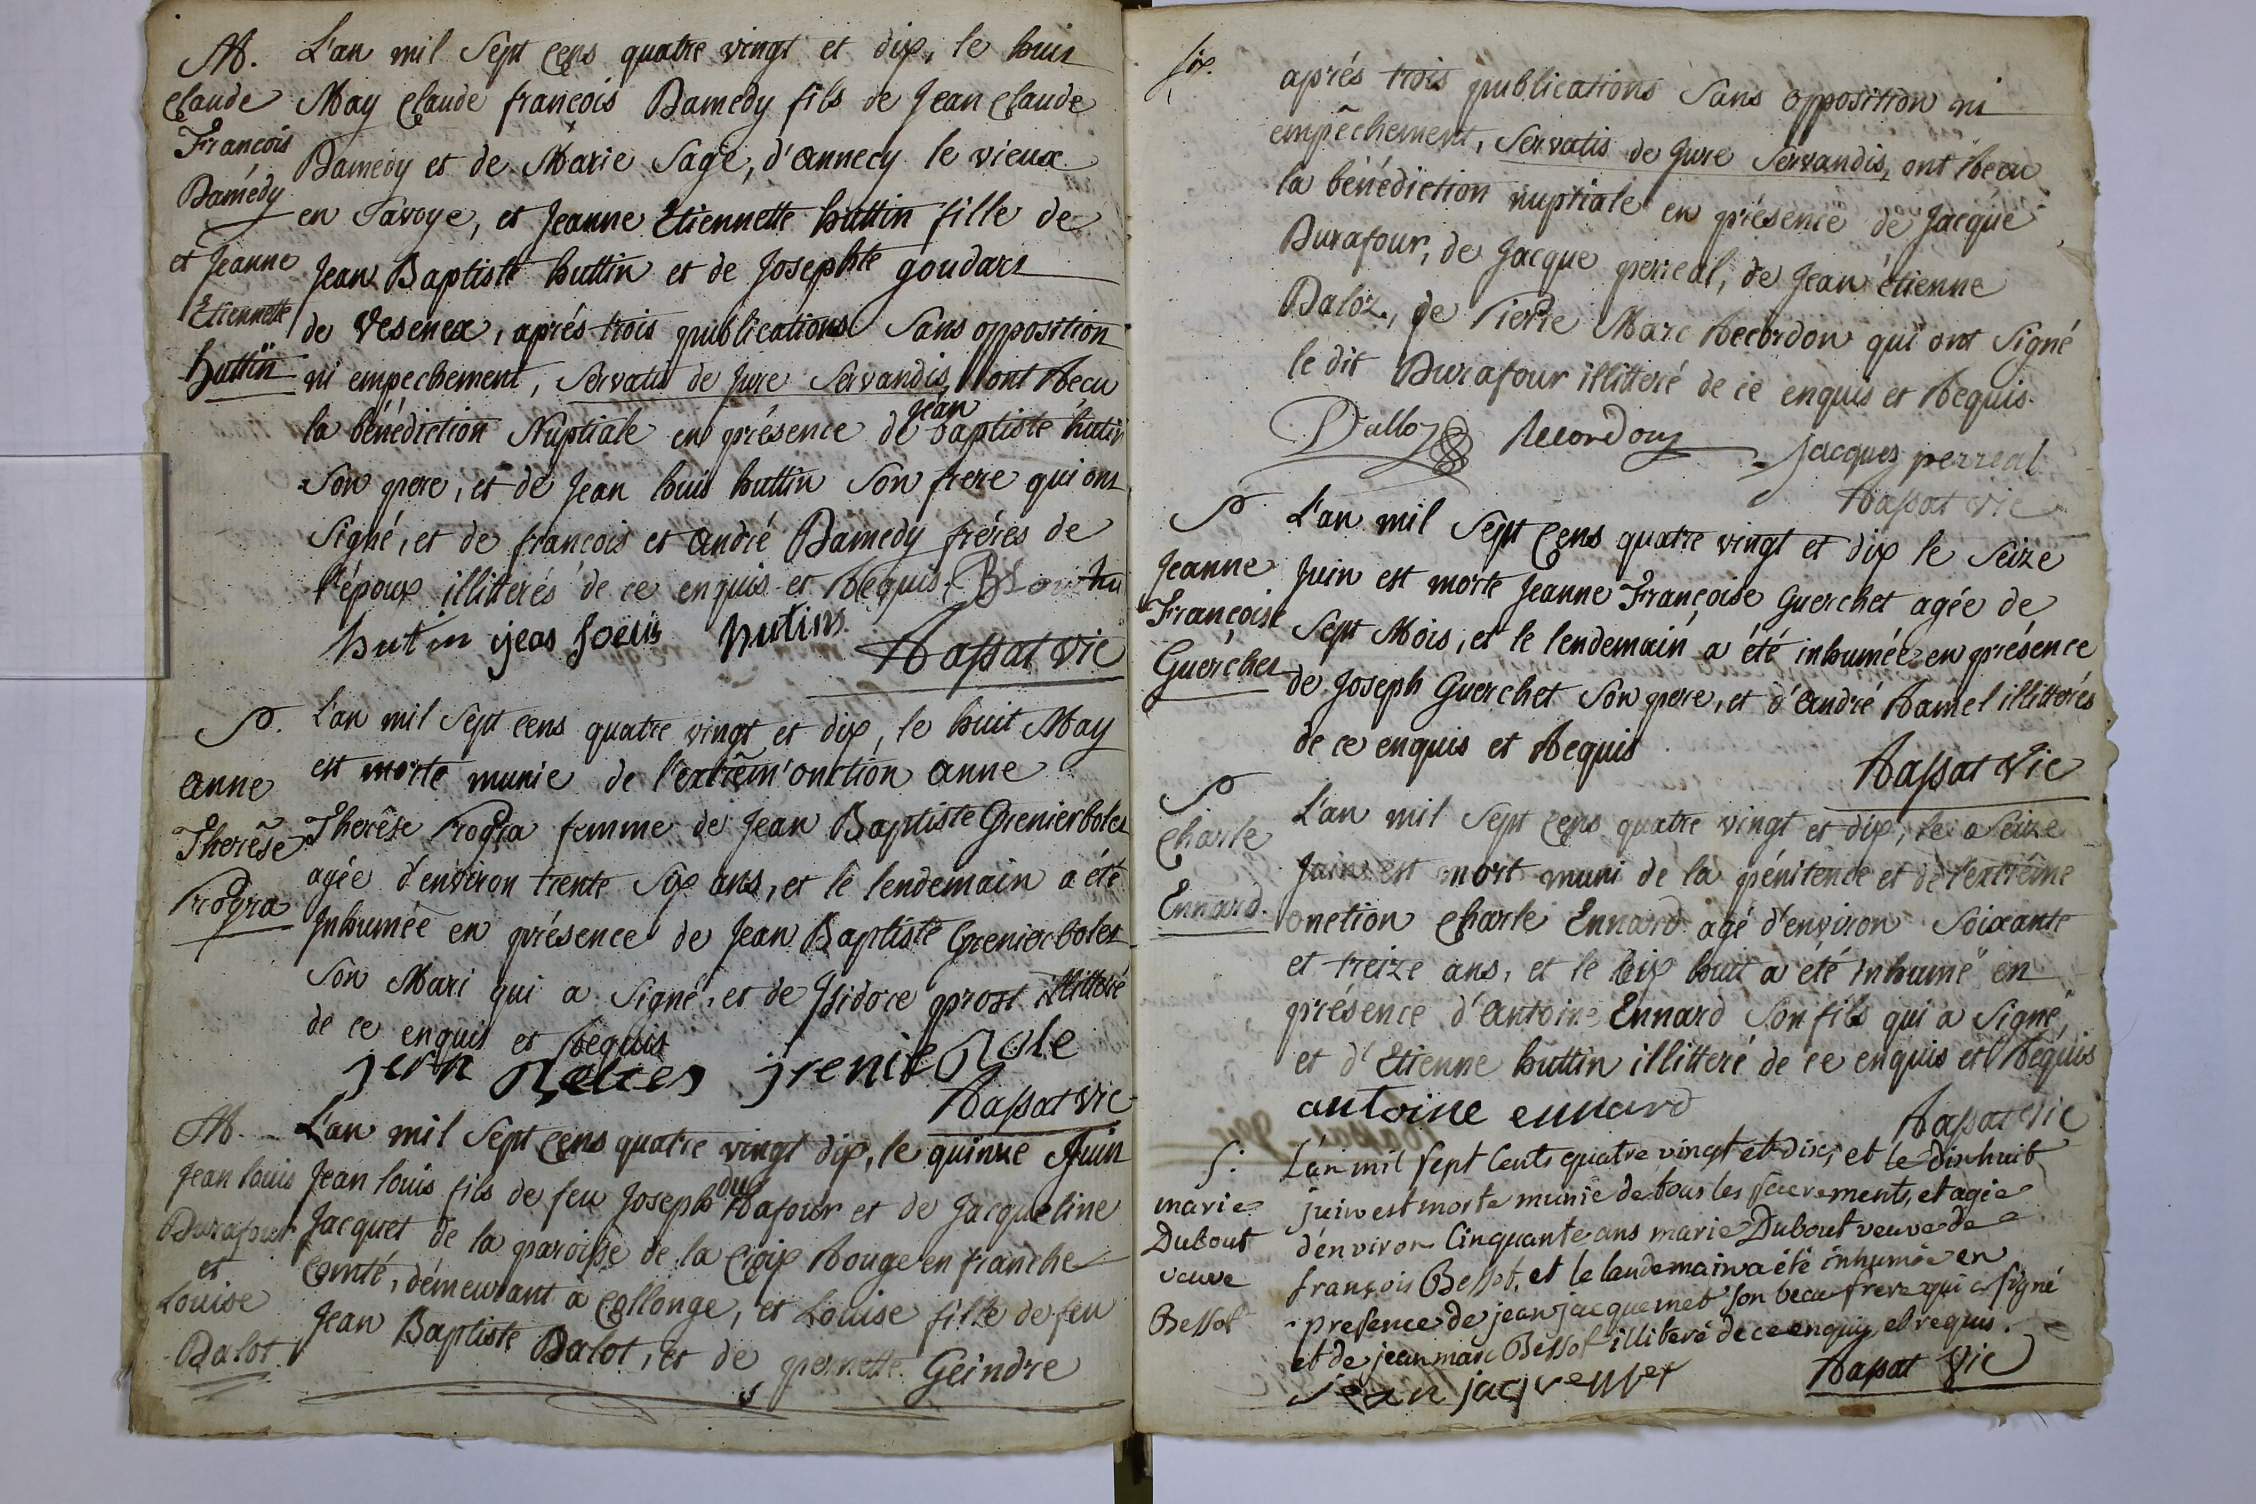 M.
Claude
François
Damédy
et Jeanne
Etiennette
huttin
L'an mil Sept cens quatre vingt et dix, le huit
May Claude françois Damedy fils de Jean Claude
Damedy et de Marie Sage, d'annecy le vieux
en Savoye, et Jeanne Etiennette huttin fille de
Jean Baptiste huttin et de Josephte goudart
de Vesenex, aprés trois publications Sans opposition
ni empechement, Servatis de Jure Servandis, ont Recu
la bénédiction Nuptiale en présence de Jean Baptiste hutin
Son pere, et de Jean louis huttin Son frere qui ont
Signé, et de françois et andré Damedy fréres de
l'époux illitterés de ce enquis et Requis.
hutin jean loeüis hutins
Rassat Vic
S.
anne
Therêse
Progra
L'an mil Sept cens quatre vingt et dix, le huit May
est morte munie de l'extrêm'onction anne
Therêse Progra femme de Jean Baptiste Grenierbolet
agée d'environ trente Six ans, et le lendemain a été
Inhumée en présence de Jean Baptiste Grenierbolet
Son Mari qui a Signé, et de Isidore prost illitteré
de ce enquis et Requis
jean jrenie Bole
Rassat vic
M.
Jean louis
Durafour
et
Louise
Dalot
L'an mil Sept cens quatre vingt dix, le quinze Juin
Jean louis fils de feu Joseph duRafour et de Jacqueline
Jacquet de la paroisse de la Croix Rouge en franche
Comté, démeurant à Collonge, et Louise fille de feu
Jean Baptiste Dalot, et de pernette Geindre
six.
aprés trois publications Sans opposition ni
empêchement, Servatis de Jure Servandis, ont Recu
la bénédiction nuptiale en présence de Jacque
Durafour, de Jacque perreal, de Jean étienne
Daloz, de Pierre Marc Recordon qui ont Signé
le dit Durafour illitteré de ce enquis et Requis.
Dalloz Recordon jacques perreal
Rassat vic
S.
Jeanne
Françoise
Guerchet
L'an mil Sept cens quatre vingt et dix le Seize
Juin est morte Jeanne Françoise Guerchet agée de
Sept Mois, et le lendemain a été inhumée en présence
de Joseph Guerchet Son pere, et d'andré Ramel illitterés
de ce enquis et Requis
Rassat Vic
S
Charle
Ennard.
L'an mil Sept cens quatre vingt et dix, le Seize
Juin est mort muni de la pénitence et de l'extrême
onction Charle Ennard agé d'environ Soixante
et treize ans, et le Dix huit a été inhumé en
présence d'Antoine Ennard Son fils qui a Signé
et d'Etienne huttin illitteré de ce enquis et Requis
antoine ennard
Rassat Vic
S.
marie
Dubout
veuve
Bessot
L'an mil sept Cents quatre vingt et dix, et le dixhuit
juin est morte munie de tous les sacrements, et agée
d'environ Cinquante ans marie Dubout veuve de
françois Bessot, et le landemain a été inhumée en
presence de jean jacquemet son beau frere qui a signé
et de jean marc Bessot illiteré de ce enquis, et requis.
jean jacquemet
Rassat Vic